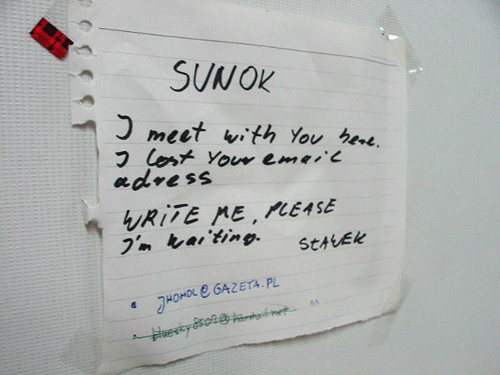 SUNOK
I meet with You here.
I lost Your email
adress
WRITE ME, PLEASE
I'm waiting.
SŁAWEK
JHOHOL@GAZETA.PL
^^